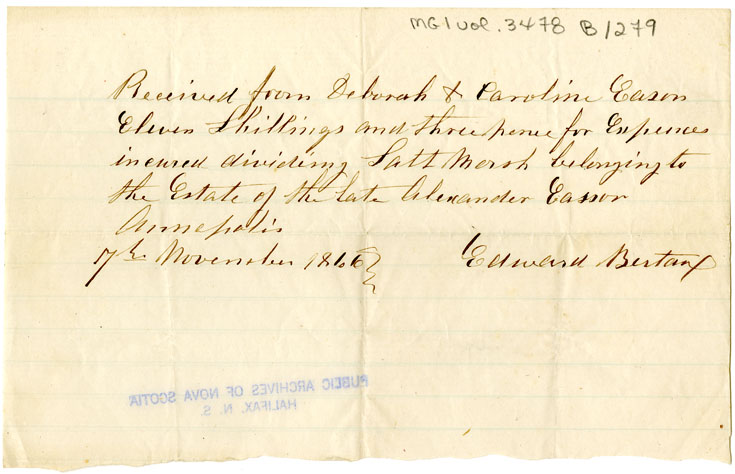 MG1 vol. 3478 B1279
Received from Deborah & Caroline Eason
Eleven Shillings and three pence for Expences
incured dividing Salt Marsh belonging to
the Estate of the late Alexander Easson
Annapolis
7th November 1866
Edward Bertaux
PUBLIC ARCHIVES OF NOVA SCOTIA
HALIFAX, N. S.